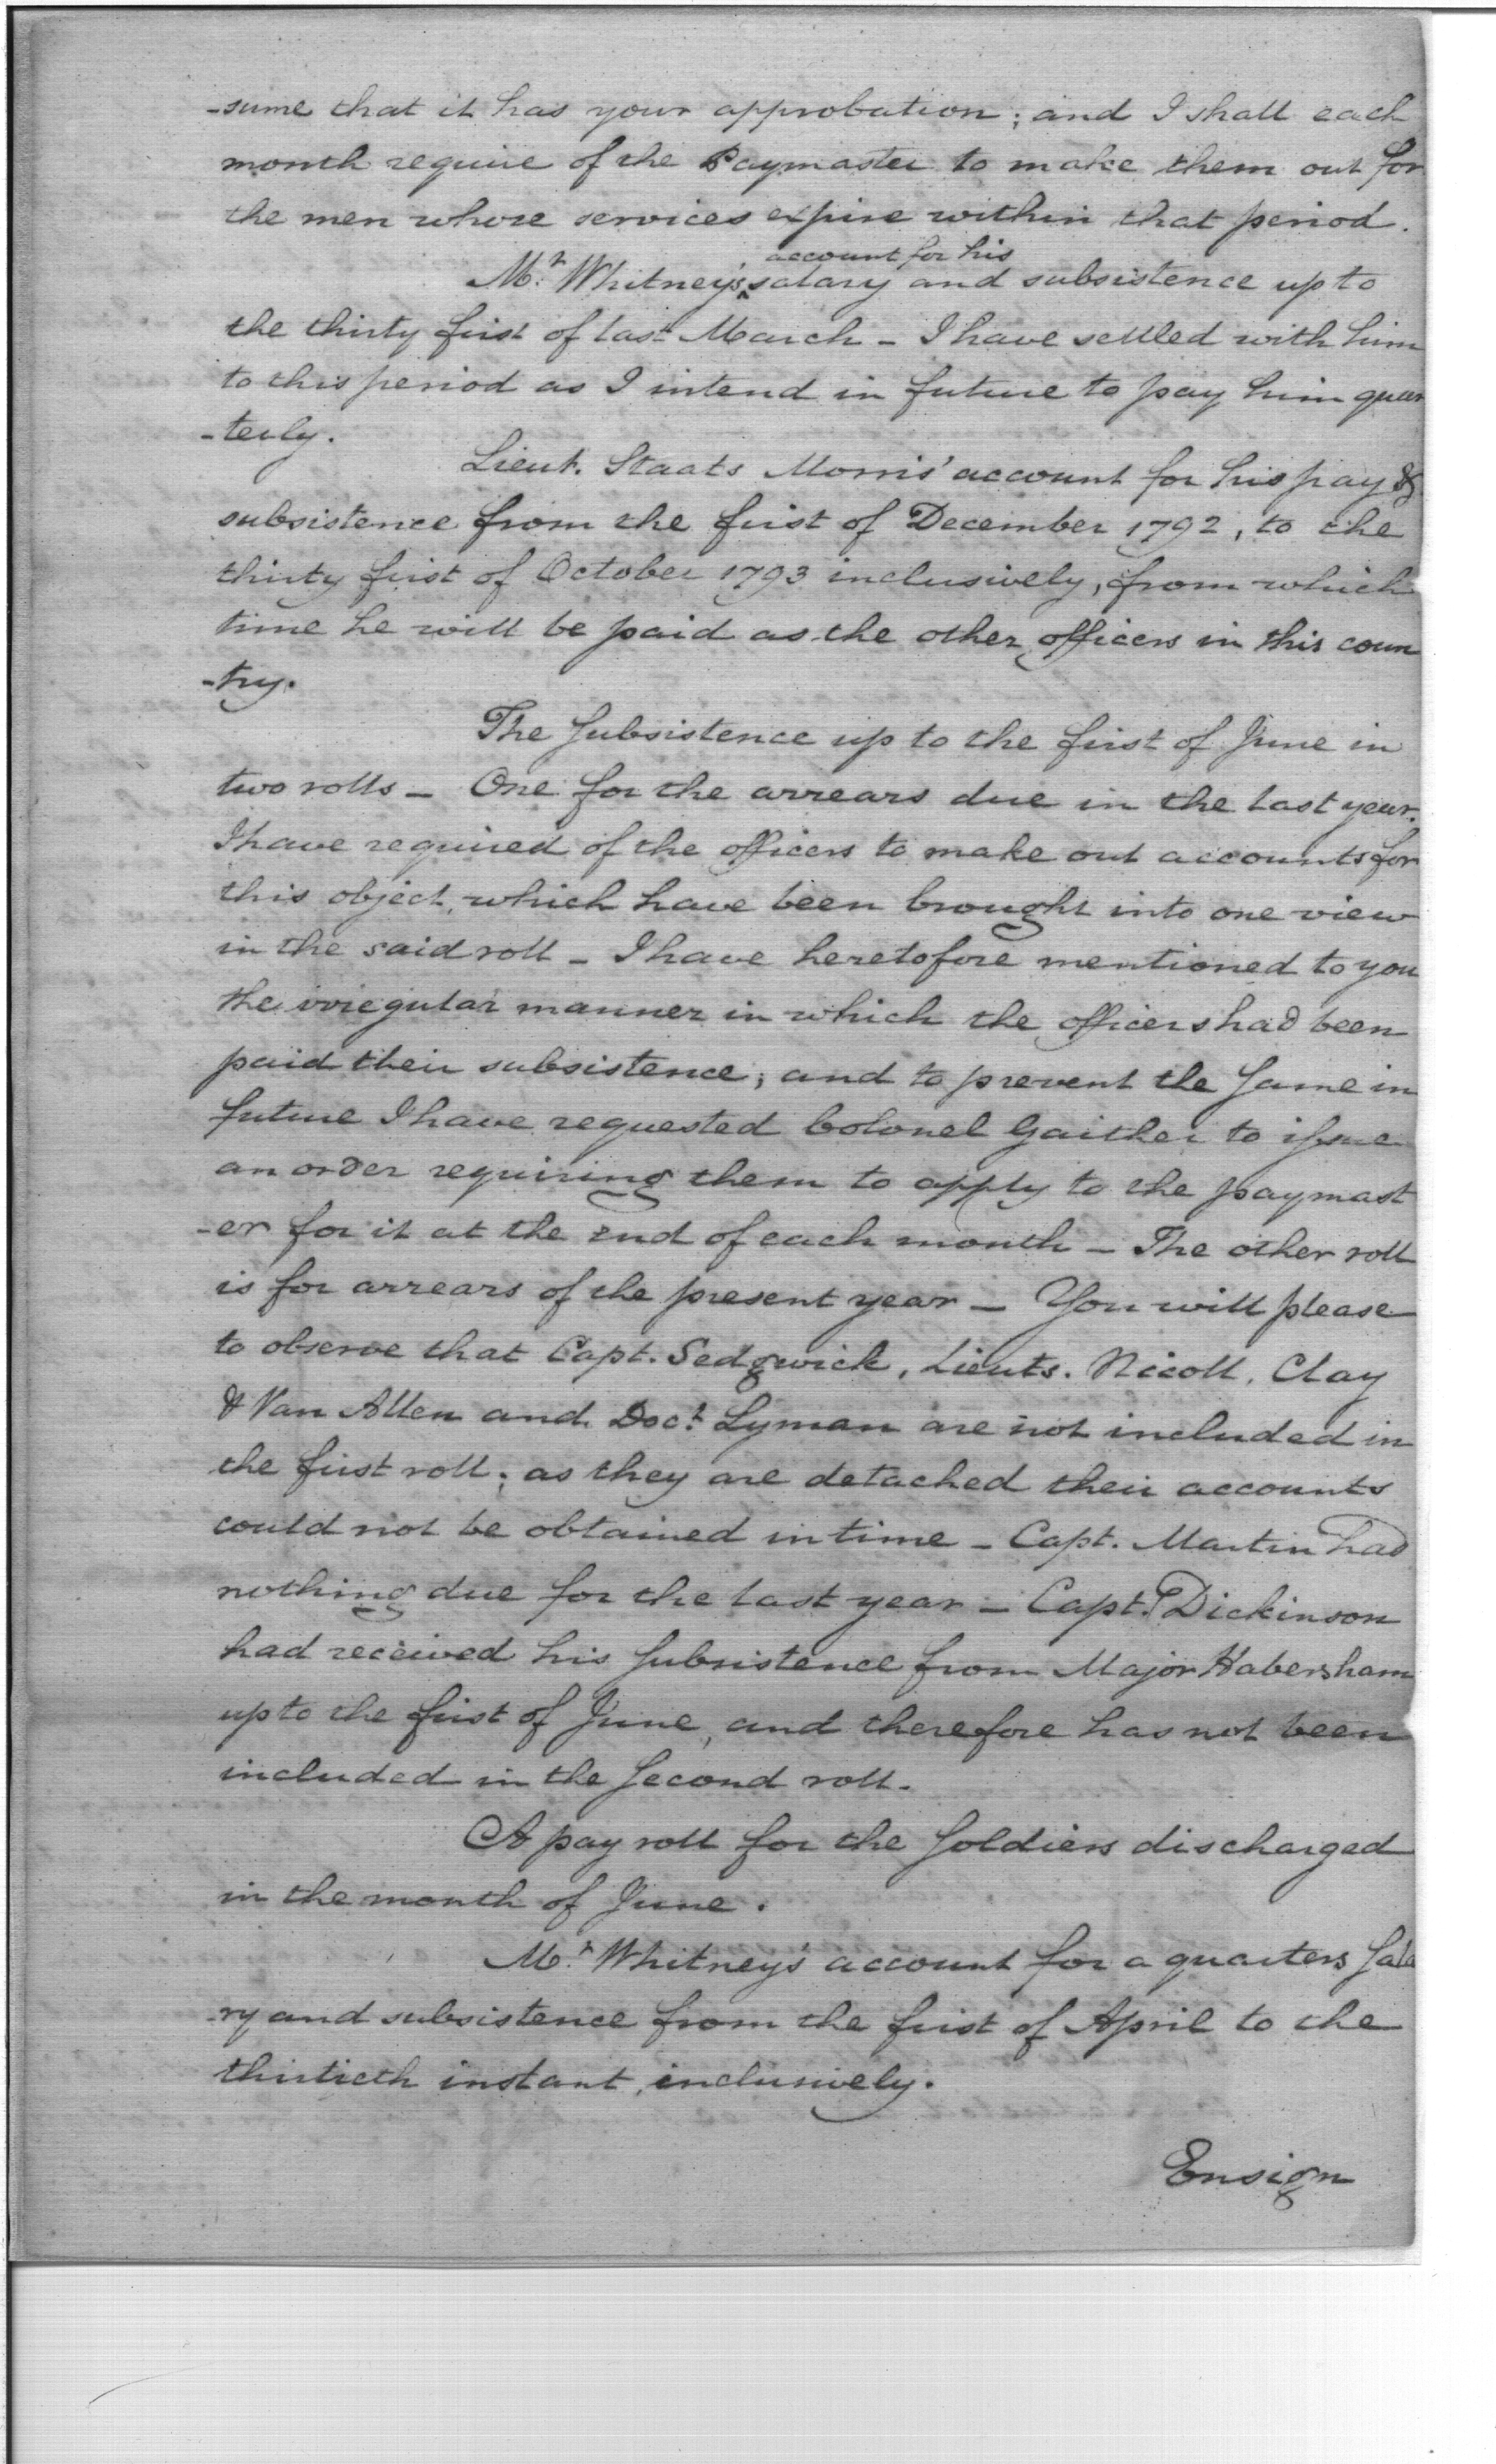 -sume that it has your approbation; and I shall each
month require of the Paymaster to make them out for
the men whose services expire within that period.
account for his
Mr. Whitney's salary and subsistence up to
the thirty first of last March - I have settled with him
to this period as I intend in future to pay him quar
-terly.
Lieut. Staats Morris' account for his pay &
subsistence from the first of December 1792, to the
thirty first of October 1793 inclusively, from which
time he will be paid as the other officers in this coun
-try.
The Subsistence up to the first of June in
two rolls - One for the arrears due in the last year.
I have required of the officers to make out accounts for
this object, which have been brought into one view
in the said roll - I have heretofore mentioned to you
the irregular manner in which the officers had been
paid their subsistence; and to prevent the same in
future I have requested Colonel Gaither to issue
an order requiring them to apply to the paymast
-er for it at the end of each month - The other roll
is for arrears of the present year - You will please
to observe that Capt. Sedgwick, Lieuts. Nicoll, Clay
& Van Allen and Doct. Lyman are not included in
the first roll; as they are detached their accounts
could not be obtained in time - Capt. Martin had
nothing due for the last year - Capt. Dickinson
had received his Subsistence from Major Habersham
up to the first of June, and therefore has not been
included in the Second roll.
A pay roll for the Soldiers discharged
in the month of June.
Mr. Whitney's account for a quarters Sala
-ry and subsistence from the first of April to the
thirtieth instant, inclusively.
Ensign